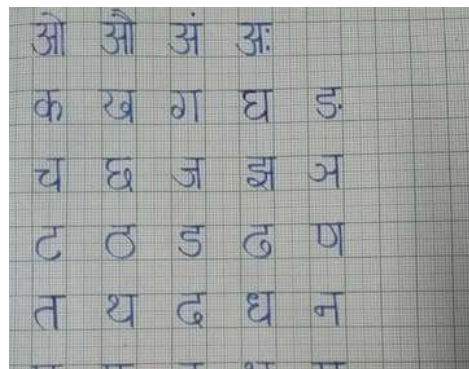 ओ औ अं अः
क ख ग घ ङ
च छ ज झ ञ
ट ठ ड ढ ण
त थ द ध न